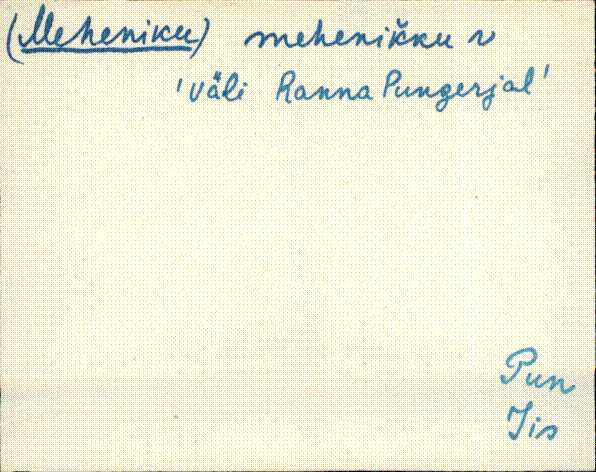 (Meheniku) mehenikku v
'väli Ranna Pungerjal'
Pun
Jis